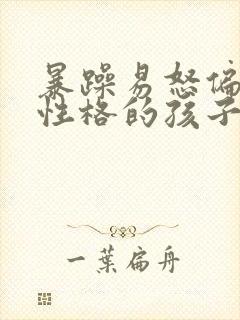 暴躁易怒偏
性格的孩子
一葉扁舟